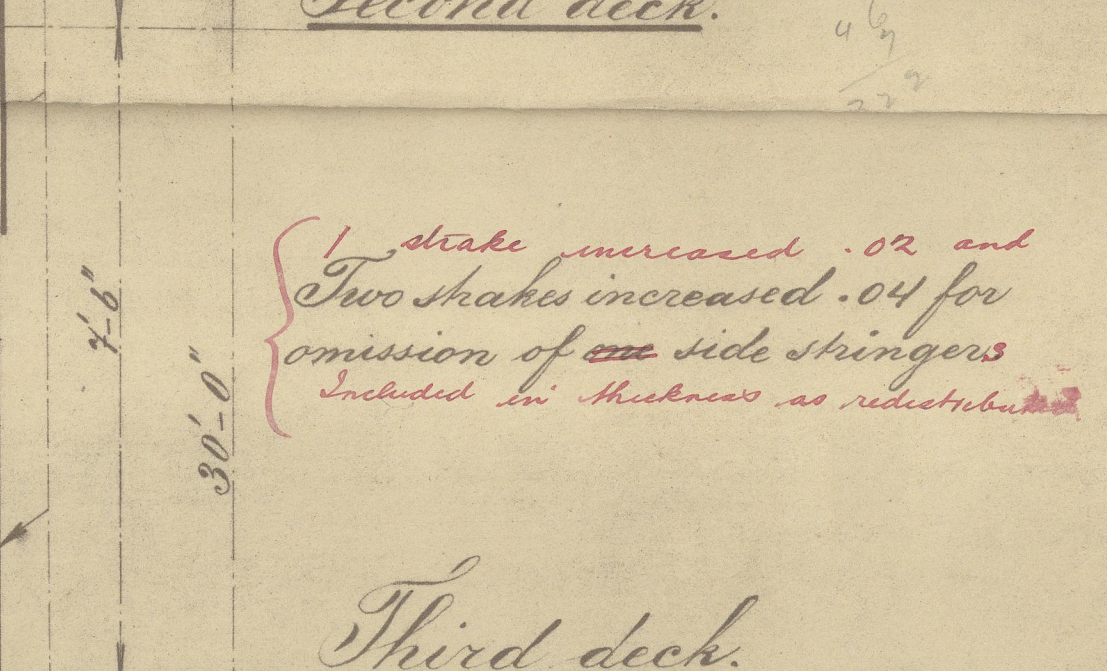 Second deck.
7'-6"
30'-0"
1 strake increased .02 and
Two strakes increased .04 for
omission of one side stringers
Included in thickness as redistributed
Third deck.